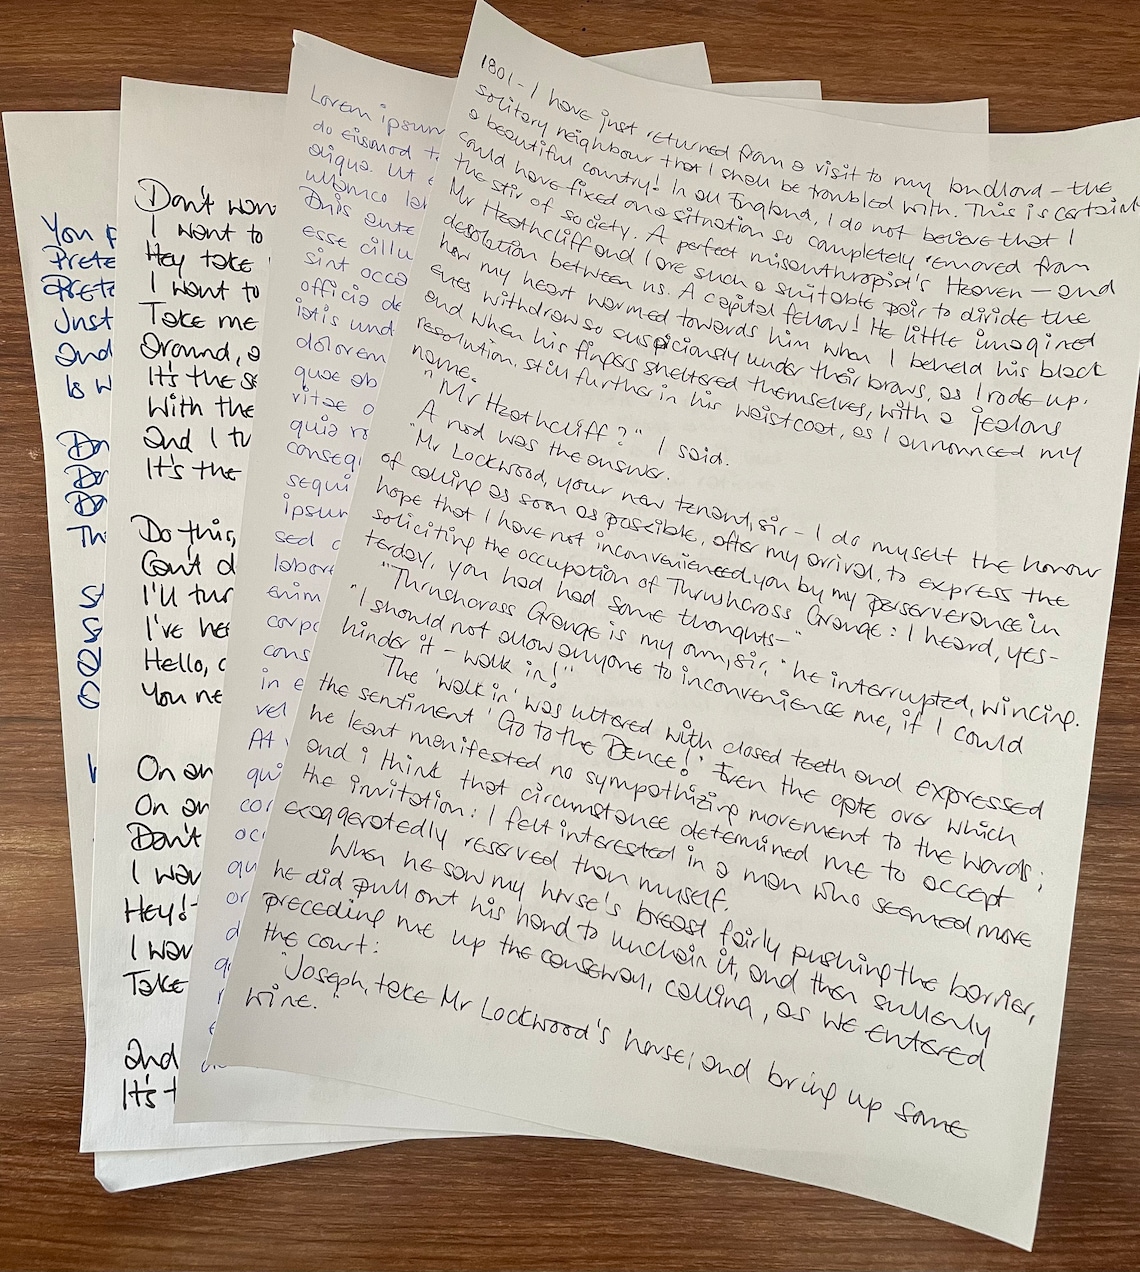 You p
Prete
Prete
Just
and
Is w
Don
Do
Do
Th
St
S
W
Don't worr
I want to
Hey take
I want to
Take me
Around, a
It's the se
With the
and I tu
It's the
Do this,
Can't d
I'll tur
I've he
Hello, c
You ne
On an
On an
Don't
I wan
Hey!
I wan
Take
and
It's t
Lorem ipsum
do eismod te
aliqua. Ut e
ullamco lab
Duis aute
esse cillu
sint occa
officia de
iatis und
dolorem
quae ab
vitae o
quia vo
consequ
sequi
ipsum
sed q
labore
enim
corpo
cons
in e
vel
At v
qui
cor
occ
qu
or
d
1801 - I have just returned from a visit to my landlord - the
solitary neighbour that I shall be troubled with. This is certainl
a beautiful country! In all England, I do not believe that I
could have fixed on a situation so completely removed from
the stir of society. A perfect misanthropist's Heaven - and
Mr Heathcliff and I are such a suitable pair to divide the
desolation between us. A capital fellow! He little imagined
how my heart warmed towards him when I beheld his black
eyes withdraw so suspiciously under their brows, as I rode up.
and when his fingers sheltered themselves, with a jealous
resolution, still further in his waistcoat, as I announced my
name.
"Mr Heathcliff?" I said.
A nod was the answer.
"Mr Lockwood, your new tenant, sir - I do myself the honour
of calling as soon as possible, after my arrival, to express the
hope that I have not inconvenienced you by my perserverance in
soliciting the occupation of Thrushcross Grange: I heard, yes-
terday, you had had some thoughts-"
"Thrushcross Grange is my own, sir," he interrupted, wincing.
"I should not allow anyone to inconvenience me, if I could
hinder it - walk in!"
The 'walk in' was uttered with closed teeth and expressed
the sentiment 'Go to the Deuce!' Even the gate over which
he leant manifested no sympathizing movement to the words;
and i think that circumstance determined me to accept
the invitation: I felt interested in a man who seemed more
exaggeratedly reserved than myself.
When he saw my horse's breast fairly pushing the barrier,
he did pull out his hand to unchain it, and then sullenly
preceding me up the causeway, calling, as we entered
the court:
"Joseph, take Mr Lockwood's horse; and bring up some
wine."